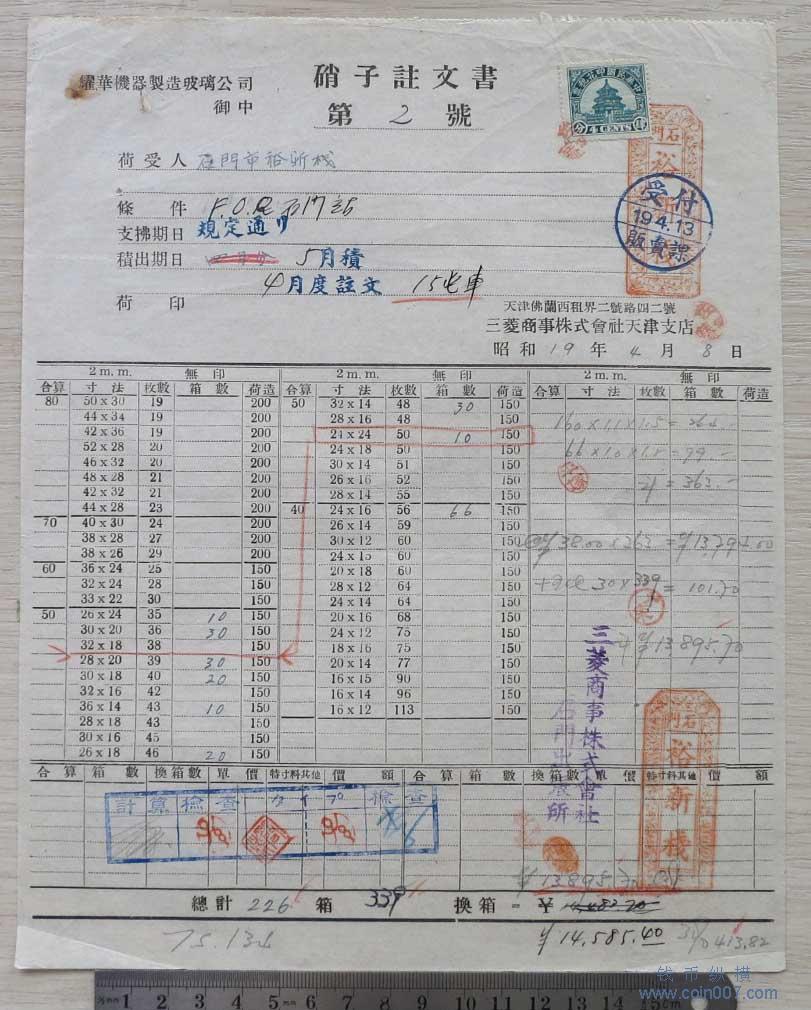 硝子註文書
耀華機器製造玻璃公司
御中
第 2 號
4 CENTS
荷受人 石門市裕新栈
條件 F.O.R 石门站
支拂期日 規定通り
積出期日 5月積
4月度註文 15屯車
荷印
受付
19.4.13
販賣課
天津佛蘭西租界二號路四二號
三菱商事株式會社天津支店
昭和 19 年 4 月 8 日
2 m.m. 無印 2 m.m. 無印 2 m.m. 無印
合算 寸法 枚數 箱數 荷造 合算 寸法 枚數 箱數 荷造 合算 寸法 枚數 箱數 荷造
80 50 x 30 19 200 50 32 x 14 48 30 150
44 x 34 19 200 28 x 16 48 150
42 x 36 19 200 24 x 24 50 10 150
52 x 28 20 200 24 x 18 50 150
46 x 32 20 200 30 x 14 51 150
48 x 28 21 200 26 x 16 52 150
42 x 32 21 200 28 x 14 55 150
44 x 28 23 200 40 24 x 16 56 66 150
70 40 x 30 24 200 26 x 14 59 150
38 x 28 27 200 30 x 12 60 150
38 x 26 29 200 24 x 15 60 150
60 36 x 24 25 150 20 x 18 60 150
32 x 24 28 150 28 x 12 64 150
33 x 22 30 150 24 x 14 64 150
50 26 x 24 35 10 150 20 x 16 68 150
30 x 20 36 30 150 24 x 12 75 150
32 x 18 38 150 18 x 16 75 150
28 x 20 39 30 150 20 x 14 77 150
30 x 18 40 20 150 16 x 15 90 150
32 x 16 42 150 16 x 14 96 150
36 x 14 43 10 150 16 x 12 113 150
28 x 18 43 150
30 x 16 45 150
26 x 18 46 20 150
160 x 1.1 x 1.5 = 264.-
66 x 1.0 x 1.5 = 99.-
= 363.-
38.00 x 363 = ¥13,794.00
30 x 339 = 101.70
¥13,895.70
三菱商事株式會社
石門出張所
石門
裕新栈
合算 箱數 換箱數 單價 特寸料其他 價額 合算 箱數 換箱數 單價 特寸料其他 價額
計算 檢查 タイプ 檢查
¥13,895.70
總計 226 箱 339 換箱 = ¥
¥14,585.40
75.13
413.82
钱币纵横
www.coin007.com
1 2 3 4 5 6 7 8 9 10 11 12 13 14 15